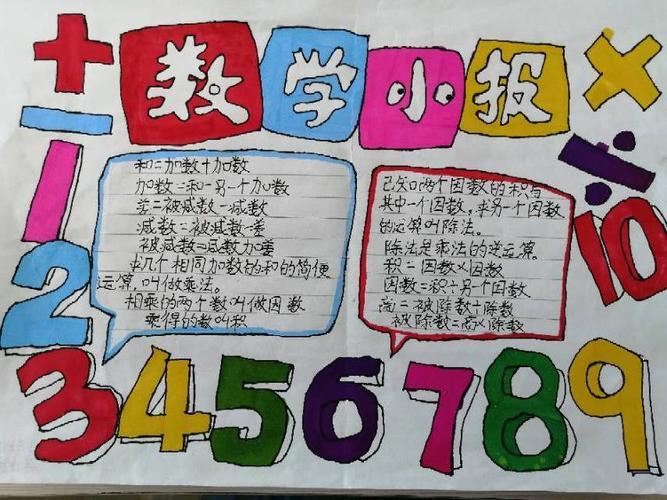 + 数学小报 ×
− ÷
和=加数+加数
加数=和-另一个加数
差=被减数-减数
减数=被减数-差
被减数=减数加差
求几个相同加数的和的简便
运算,叫做乘法。
相乘的两个数叫做因数
乘得的数叫积
已知两个因数的积与
其中一个因数,求另一个因数
的运算叫除法。
除法是乘法的逆运算。
积=因数×因数
因数=积÷另个因数
商=被除数÷除数
被除数=商×除数
1
10
2
3 4 5 6 7 8 9